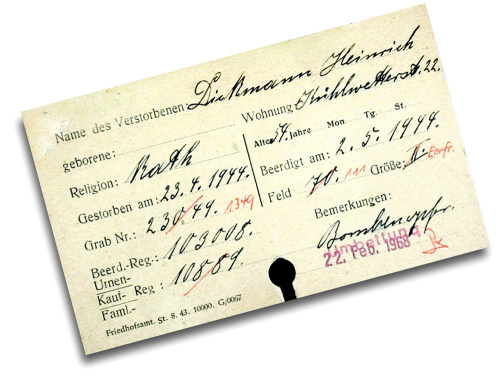 Name des Verstorbenen Dickmann Heinrich
geborene: Wohnung Kühlwetterst. 22.
Religion: Kath Alter 54 Jahre Mon. Tg. St.
Gestorben am: 23.4.1944. Beerdigt am: 2.5.1944.
Grab Nr.: 230.49. 1349 Feld 70. 111 Größe: II.
Beerd.-Reg.: 103008. Bemerkungen:
Urnen-
Kauf- Reg: 10889. Bombenopfr.
Faml.-
Umbettung
22. Feb. 1968
Friedhofsamt. St. 8. 43. 10000. G/0067